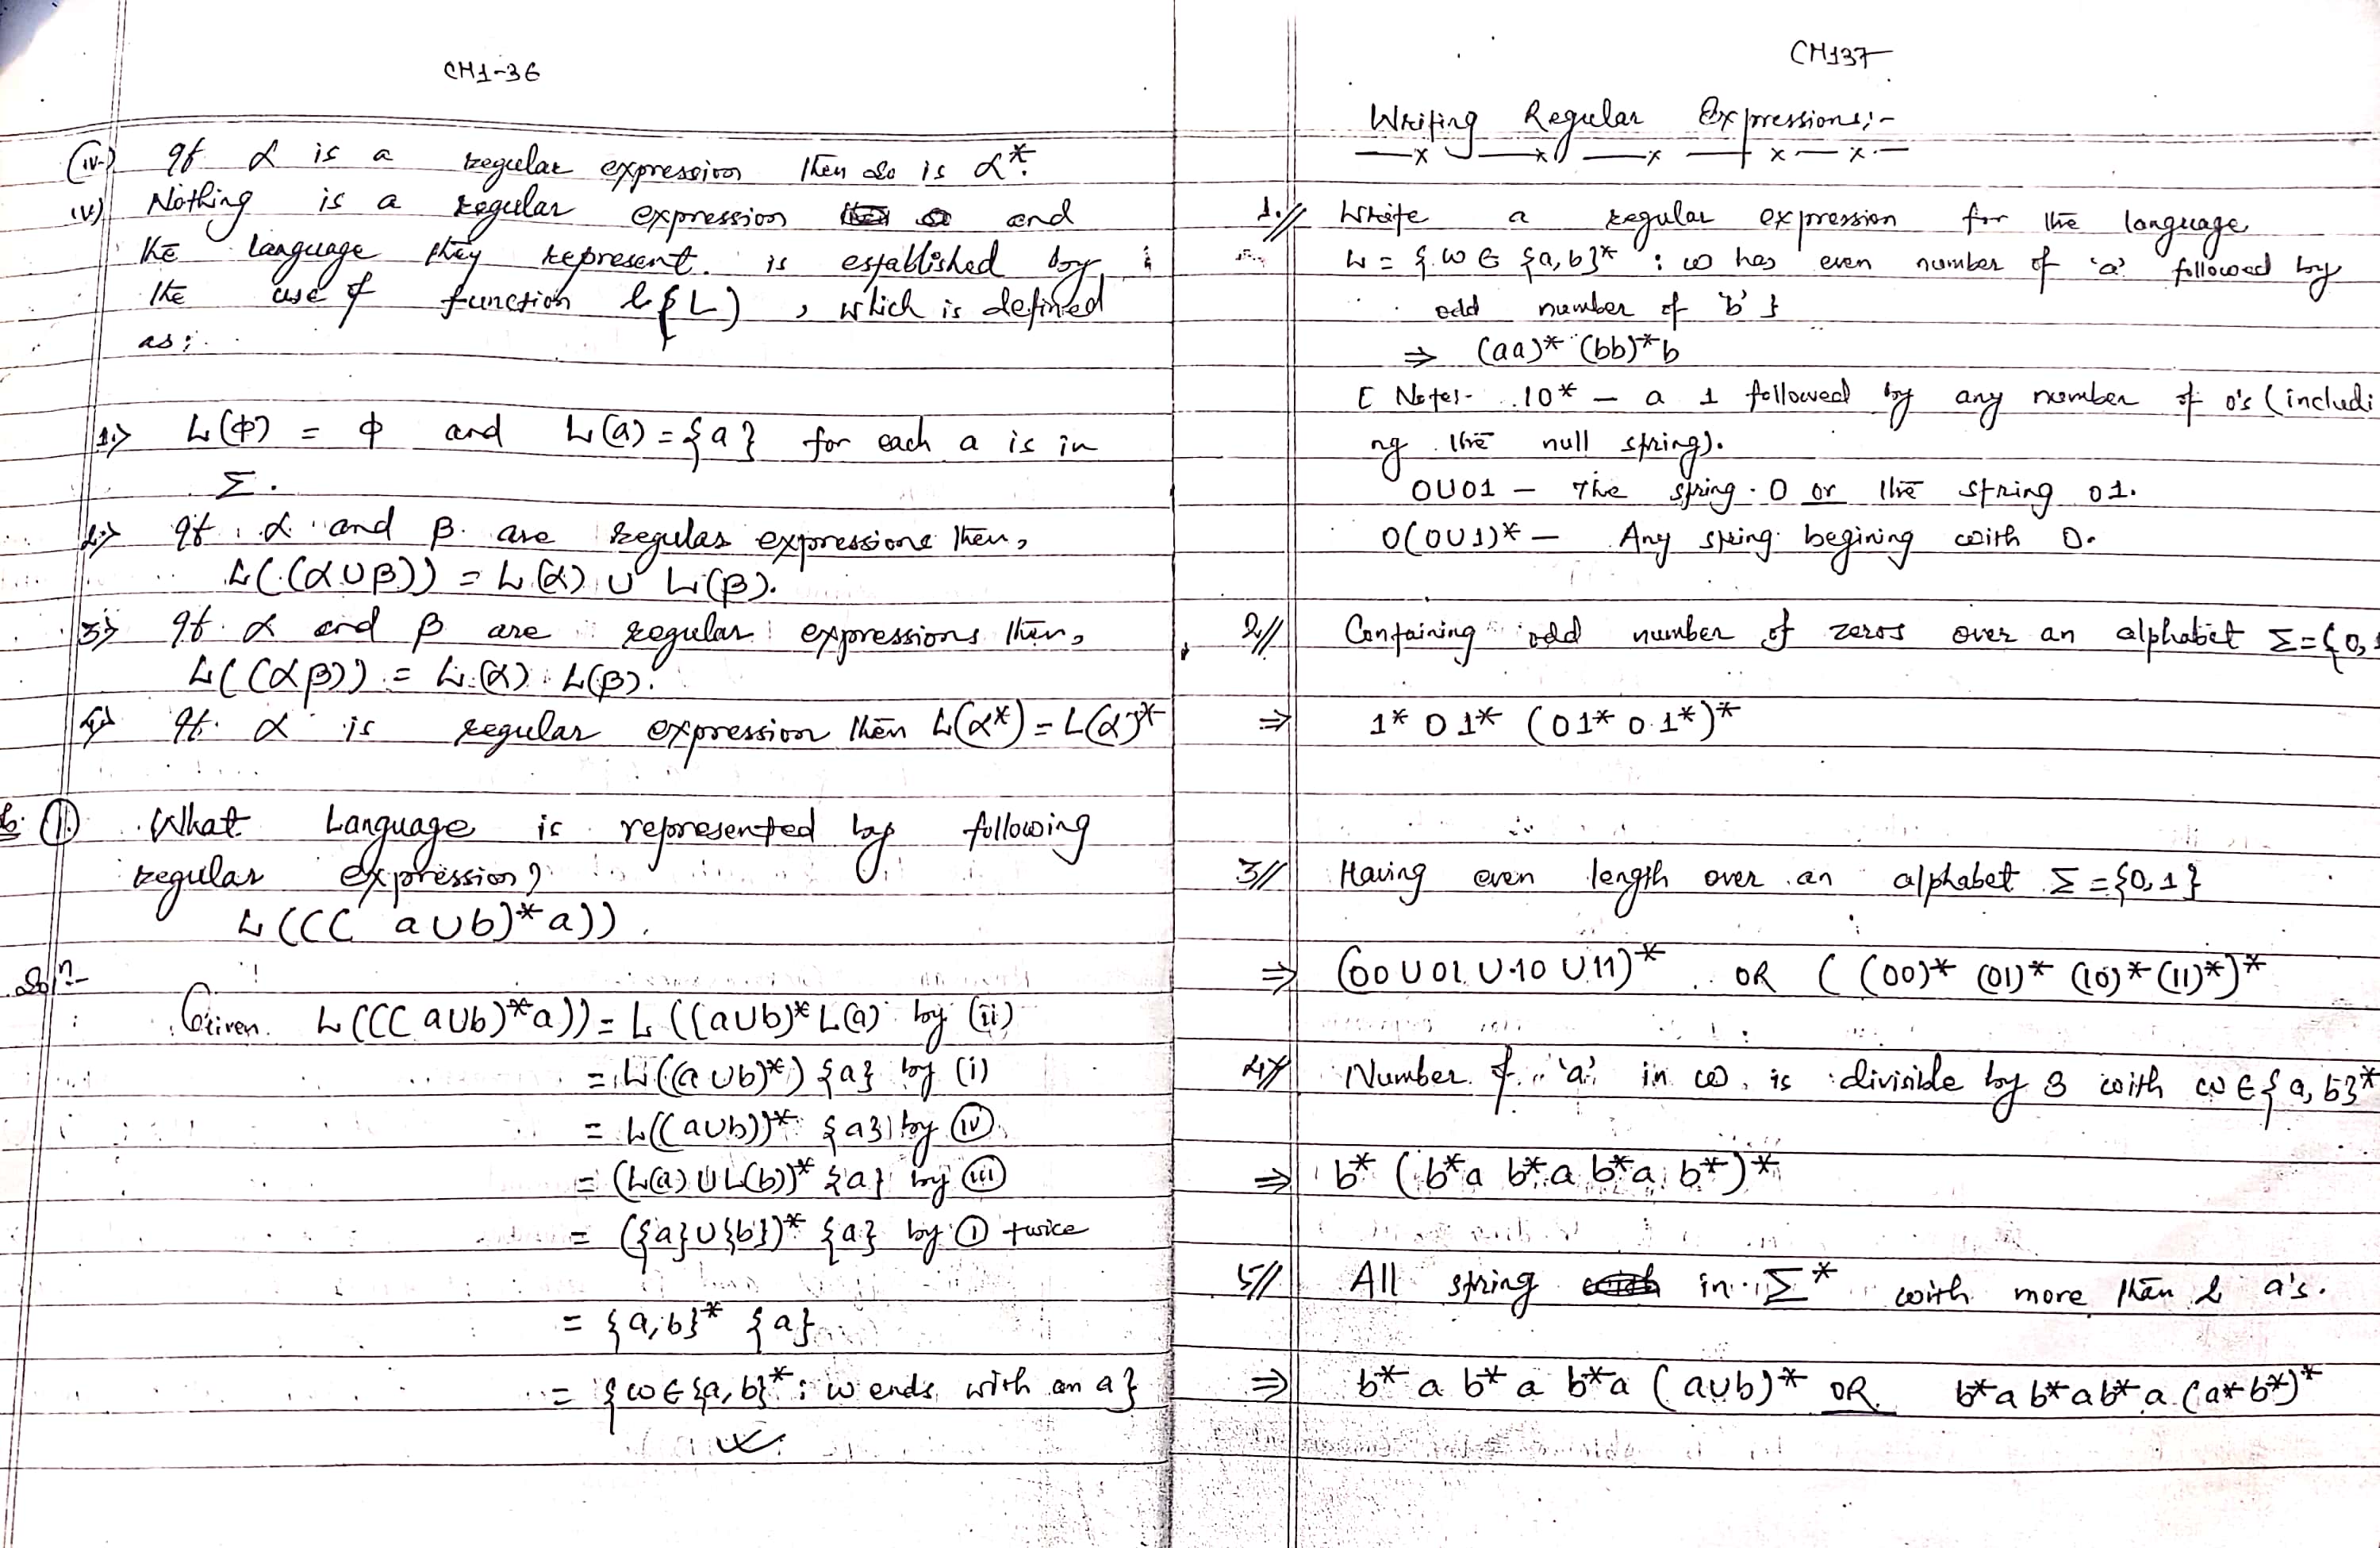 CH1-36
(iv) If α is a regular expression then so is α*.
(v) Nothing is a regular expression and
the language they represent is established by
the use of function L) , which is defined
as;
1.> L(ϕ) = ϕ and L(a) = {a} for each a is in
Σ.
2.> If α and β are regular expressions then,
L((α∪β)) = L(α) ∪ L(β).
3.> If α and β are regular expressions then,
L((αβ)) = L(α) L(β).
4.> If α is regular expression then L(α*) = L(α)*
(1). What Language is represented by following
regular expression?
L((( a∪b)*a)).
Solⁿ-
Given. L((( a∪b)*a)) = L((a∪b)* L(a) by (ii)
= L((a∪b)*) {a} by (i)
= L((a∪b))* {a} by (iv)
= (L(a) ∪ L(b))* {a} by (iii)
= ({a}∪{b})* {a} by (1) twice
= {a,b}* {a}
= {w∈{a,b}* : w ends with an a}
CH137
Writing Regular Expressions;-
1.// Write a regular expression for the language
L = {w ∈ {a,b}* : w has even number of 'a' followed by
odd number of 'b' }
⇒ (aa)* (bb)*b
[ Note:- 10* – a 1 followed by any number of 0's (includi
ng the null string).
0∪01 – The string 0 or the string 01.
0(0∪1)* – Any string begining with 0.
2// Containing odd number of zeros over an alphabet Σ={0,1
⇒ 1* 0 1* (0 1* 0 1*)*
3// Having even length over an alphabet Σ = {0,1}
⇒ (00 ∪ 01 ∪ 10 ∪ 11)* OR ( (00)* (01)* (10)* (11)*)*
4// Number of 'a' in w, is divisible by 3 with w ∈ {a, b}*
⇒ b* (b*a b*a b*a b*)*
5// All string in Σ* with more than 2 a's.
⇒ b* a b* a b*a (a∪b)* OR b*a b*a b*a (a* b*)*